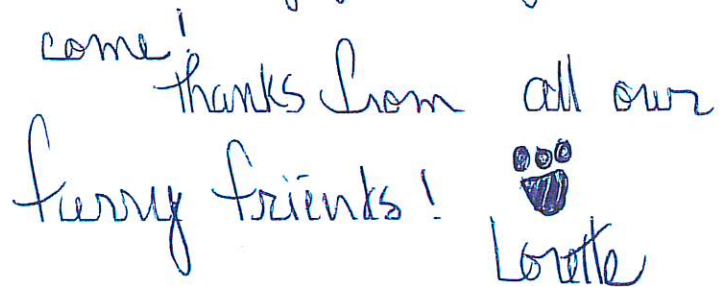 come!
thanks from all our
furry friends!
Lorette